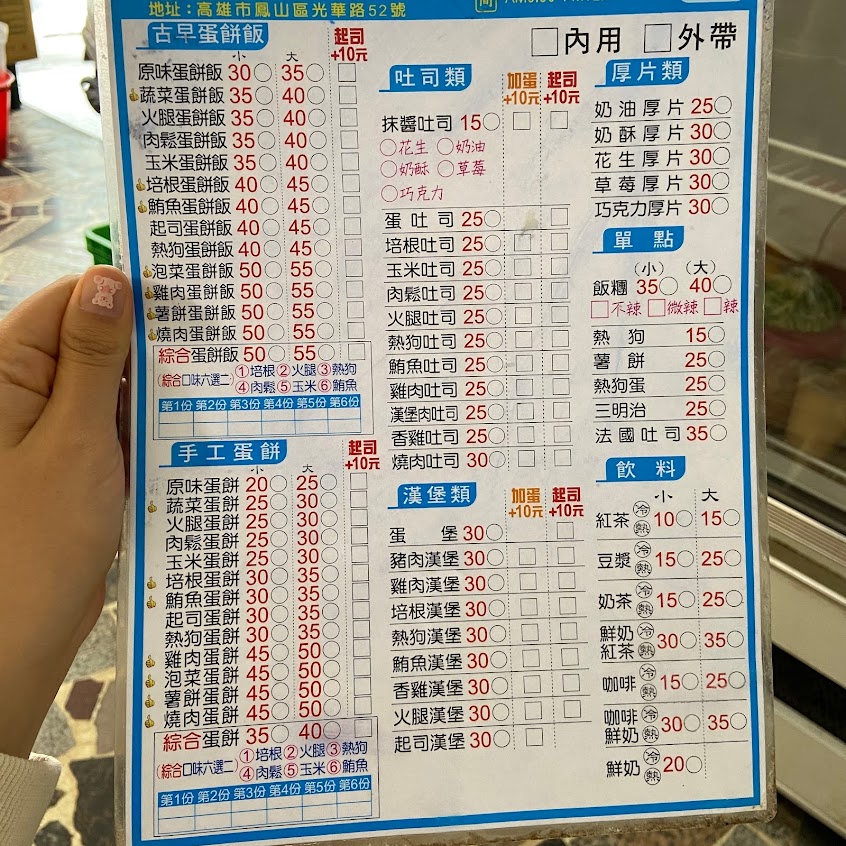 地址：高雄市鳳山區光華路52號
□內用 □外帶
古早蛋餅飯
小 大 起司+10元
原味蛋餅飯 30 35
蔬菜蛋餅飯 35 40
火腿蛋餅飯 35 40
肉鬆蛋餅飯 35 40
玉米蛋餅飯 35 40
培根蛋餅飯 40 45
鮪魚蛋餅飯 40 45
起司蛋餅飯 40 45
熱狗蛋餅飯 40 45
泡菜蛋餅飯 50 55
雞肉蛋餅飯 50 55
薯餅蛋餅飯 50 55
燒肉蛋餅飯 50 55
綜合蛋餅飯 50 55
(綜合口味六選二)
①培根②火腿③熱狗
④肉鬆⑤玉米⑥鮪魚
第1份 第2份 第3份 第4份 第5份 第6份
手工蛋餅
小 大 起司+10元
原味蛋餅 20 25
蔬菜蛋餅 25 30
火腿蛋餅 25 30
肉鬆蛋餅 25 30
玉米蛋餅 25 30
培根蛋餅 30 35
鮪魚蛋餅 30 35
起司蛋餅 30 35
熱狗蛋餅 30 35
雞肉蛋餅 45 50
泡菜蛋餅 45 50
薯餅蛋餅 45 50
燒肉蛋餅 45 50
綜合蛋餅 35 40
(綜合口味六選二)
①培根②火腿③熱狗
④肉鬆⑤玉米⑥鮪魚
第1份 第2份 第3份 第4份 第5份 第6份
吐司類
加蛋+10元 起司+10元
抹醬吐司 15
○花生 ○奶油
○奶酥 ○草莓
○巧克力
蛋吐司 25
培根吐司 25
玉米吐司 25
肉鬆吐司 25
火腿吐司 25
熱狗吐司 25
鮪魚吐司 25
雞肉吐司 25
漢堡肉吐司 25
香雞吐司 25
燒肉吐司 30
漢堡類
加蛋+10元 起司+10元
蛋堡 30
豬肉漢堡 30
雞肉漢堡 30
培根漢堡 30
熱狗漢堡 30
鮪魚漢堡 30
香雞漢堡 30
火腿漢堡 30
起司漢堡 30
厚片類
奶油厚片 25
奶酥厚片 30
花生厚片 30
草莓厚片 30
巧克力厚片 30
單點
(小) (大)
飯糰 35 40
□不辣 □微辣 □辣
熱狗 15
薯餅 25
熱狗蛋 25
三明治 25
法國吐司 35
飲料
小 大
紅茶 冷 熱 10 15
豆漿 冷 熱 15 25
奶茶 冷 熱 15 25
鮮奶紅茶 冷 熱 30 35
咖啡 冷 熱 15 25
咖啡鮮奶 冷 熱 30 35
鮮奶 冷 熱 20